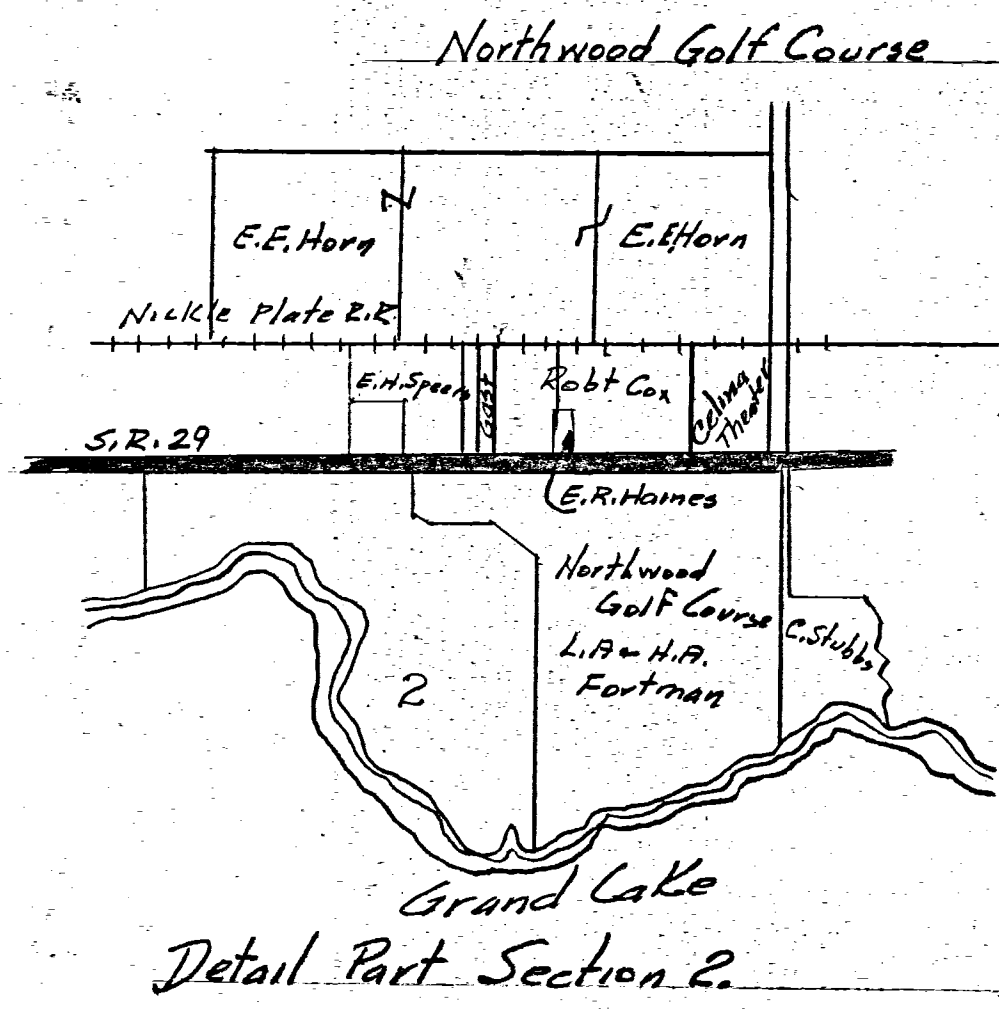 Northwood Golf Course
E.E. Horn
E.E. Horn
Nickle Plate R.R.
E.H. Speers
Gast
Robt Cox
Celina
Theater
S.R. 29
E.R. Haines
Northwood
Golf Course
L.A & H.A.
Fortman
C. Stubbs
2
Grand Lake
Detail Part Section 2.